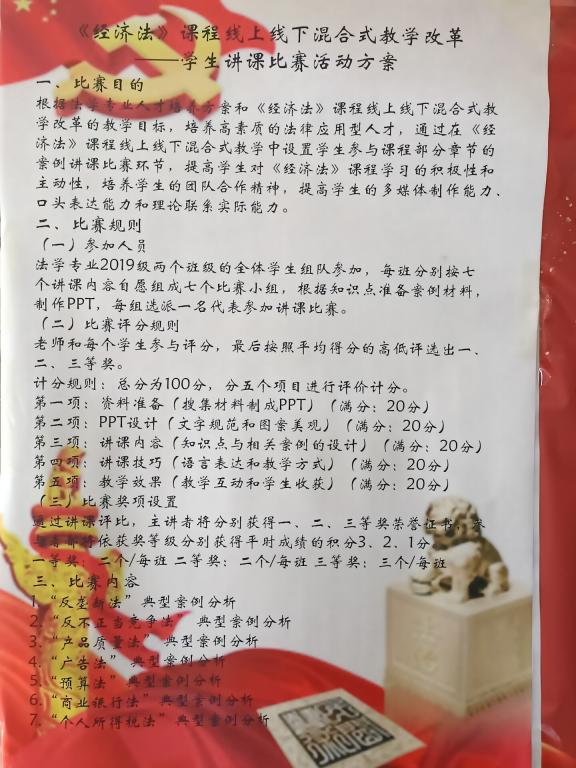 《经济法》课程线上线下混合式教学改革
——学生讲课比赛活动方案
一、比赛目的
根据法学专业人才培养方案和《经济法》课程线上线下混合式教
学改革的教学目标，培养高素质的法律应用型人才，通过在《经
济法》课程线上线下混合式教学中设置学生参与课程部分章节的
案例讲课比赛环节，提高学生对《经济法》课程学习的积极性和
主动性，培养学生的团队合作精神，提高学生的多媒体制作能力、
口头表达能力和理论联系实际能力。
二、比赛规则
（一）参加人员
法学专业2019级两个班级的全体学生组队参加，每班分别按七
个讲课内容自愿组成七个比赛小组，根据知识点准备案例材料，
制作PPT，每组选派一名代表参加讲课比赛。
（二）比赛评分规则
老师和每个学生参与评分，最后按照平均得分的高低评选出一、
二、三等奖。
计分规则：总分为100分，分五个项目进行评价计分。
第一项：资料准备（搜集材料制成PPT）（满分：20分）
第二项：PPT设计（文字规范和图案美观）（满分：20分）
第三项：讲课内容（知识点与相关案例的设计）（满分：20分）
第四项：讲课技巧（语言表达和教学方式）（满分：20分）
第五项：教学效果（教学互动和学生收获）（满分：20分）
（三）比赛奖项设置
通过讲课评比，主讲者将分别获得一、二、三等奖荣誉证书，参
与者都将依获奖等级分别获得平时成绩的积分3、2、1分
一等奖：二个/每班 二等奖：二个/每班 三等奖：三个/每班
三、比赛内容
1.“反垄断法”典型案例分析
2.“反不正当竞争法”典型案例分析
3.“产品质量法”典型案例分析
4.“广告法”典型案例分析
5.“预算法”典型案例分析
6.“商业银行法”典型案例分析
7.“个人所得税法”典型案例分析